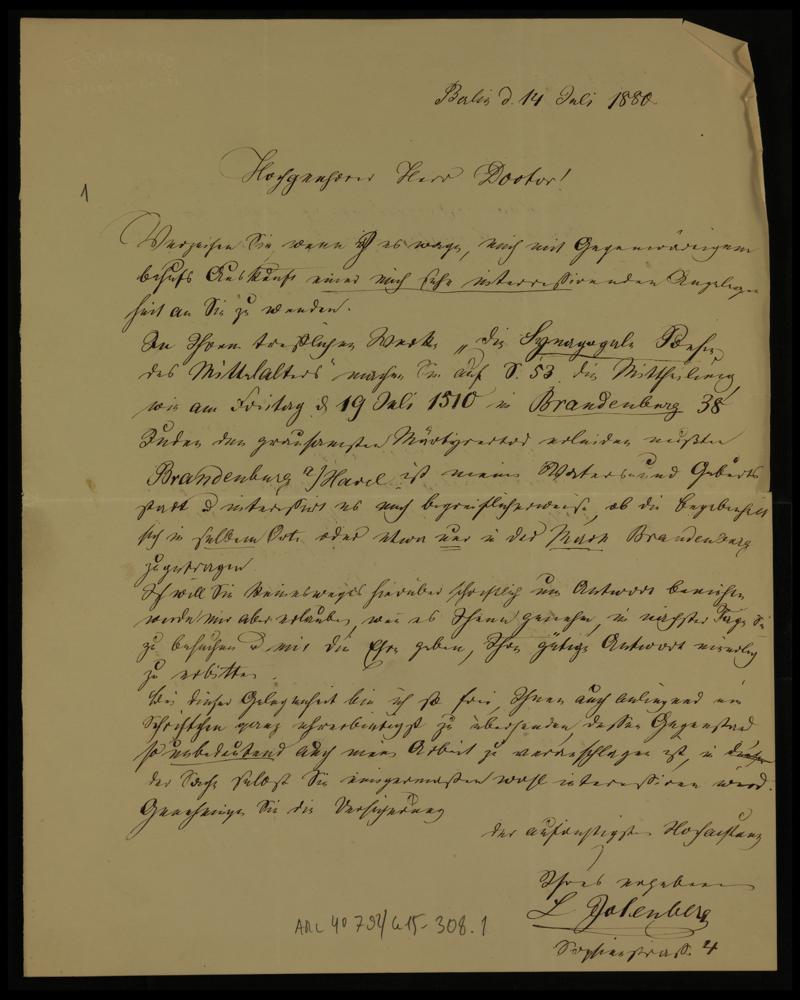 Berlin d. 14 Juli 1880
Hochgeehrter Herr Doctor!
1
Verzeihen Sie, wenn ich es wage, mich mit Gegenwärtigem
behufs Auskunft einer mich sehr interressirenden Angelegen
heit an Sie zu wenden.
In Ihrem trefflichen Werke „die Synagogale Poesie
des Mittelalters" machen Sie auf S. 53 die Mittheilung,
wie am Freitag d 19 Juli 1510 in Brandenburg 38
Juden den grausamsten Märtyrertod erleiden mußten
Brandenburg a/Havel ist meine Vater- und Geburts
stadt u interessirt es mich begreiflicherweise, ob die Begebenheit
sich in selbem Orte oder etwa nur in der Mark Brandenburg
zugetragen
Ich will Sie keineswegs hierüber schriftlich um Antwort bemühen
werde mir aber erlauben, wenn es Ihnen genehm, in nächster Tage Sie
zu besuchen u mir die Ehre geben, Ihre gütige Antwort mündlich
zu erbitten.
Bei dieser Gelegenheit bin ich so frei, Ihnen auch anliegend ein
Schriftchen ganz ehrerbietigst zu übersenden, dessen Gegenstand
so unbedeutend auch meine Arbeit zu veranschlagen ist, in
der Sache selbst Sie einigermaßen wohl interessiren wird.
Genehmigen Sie die Versicherung
der aufrichtigsten Hochachtung
Ihres ergebenen
L Dolenberg
Sophienstraß. 4
ARC 4° 792/G15-308.1